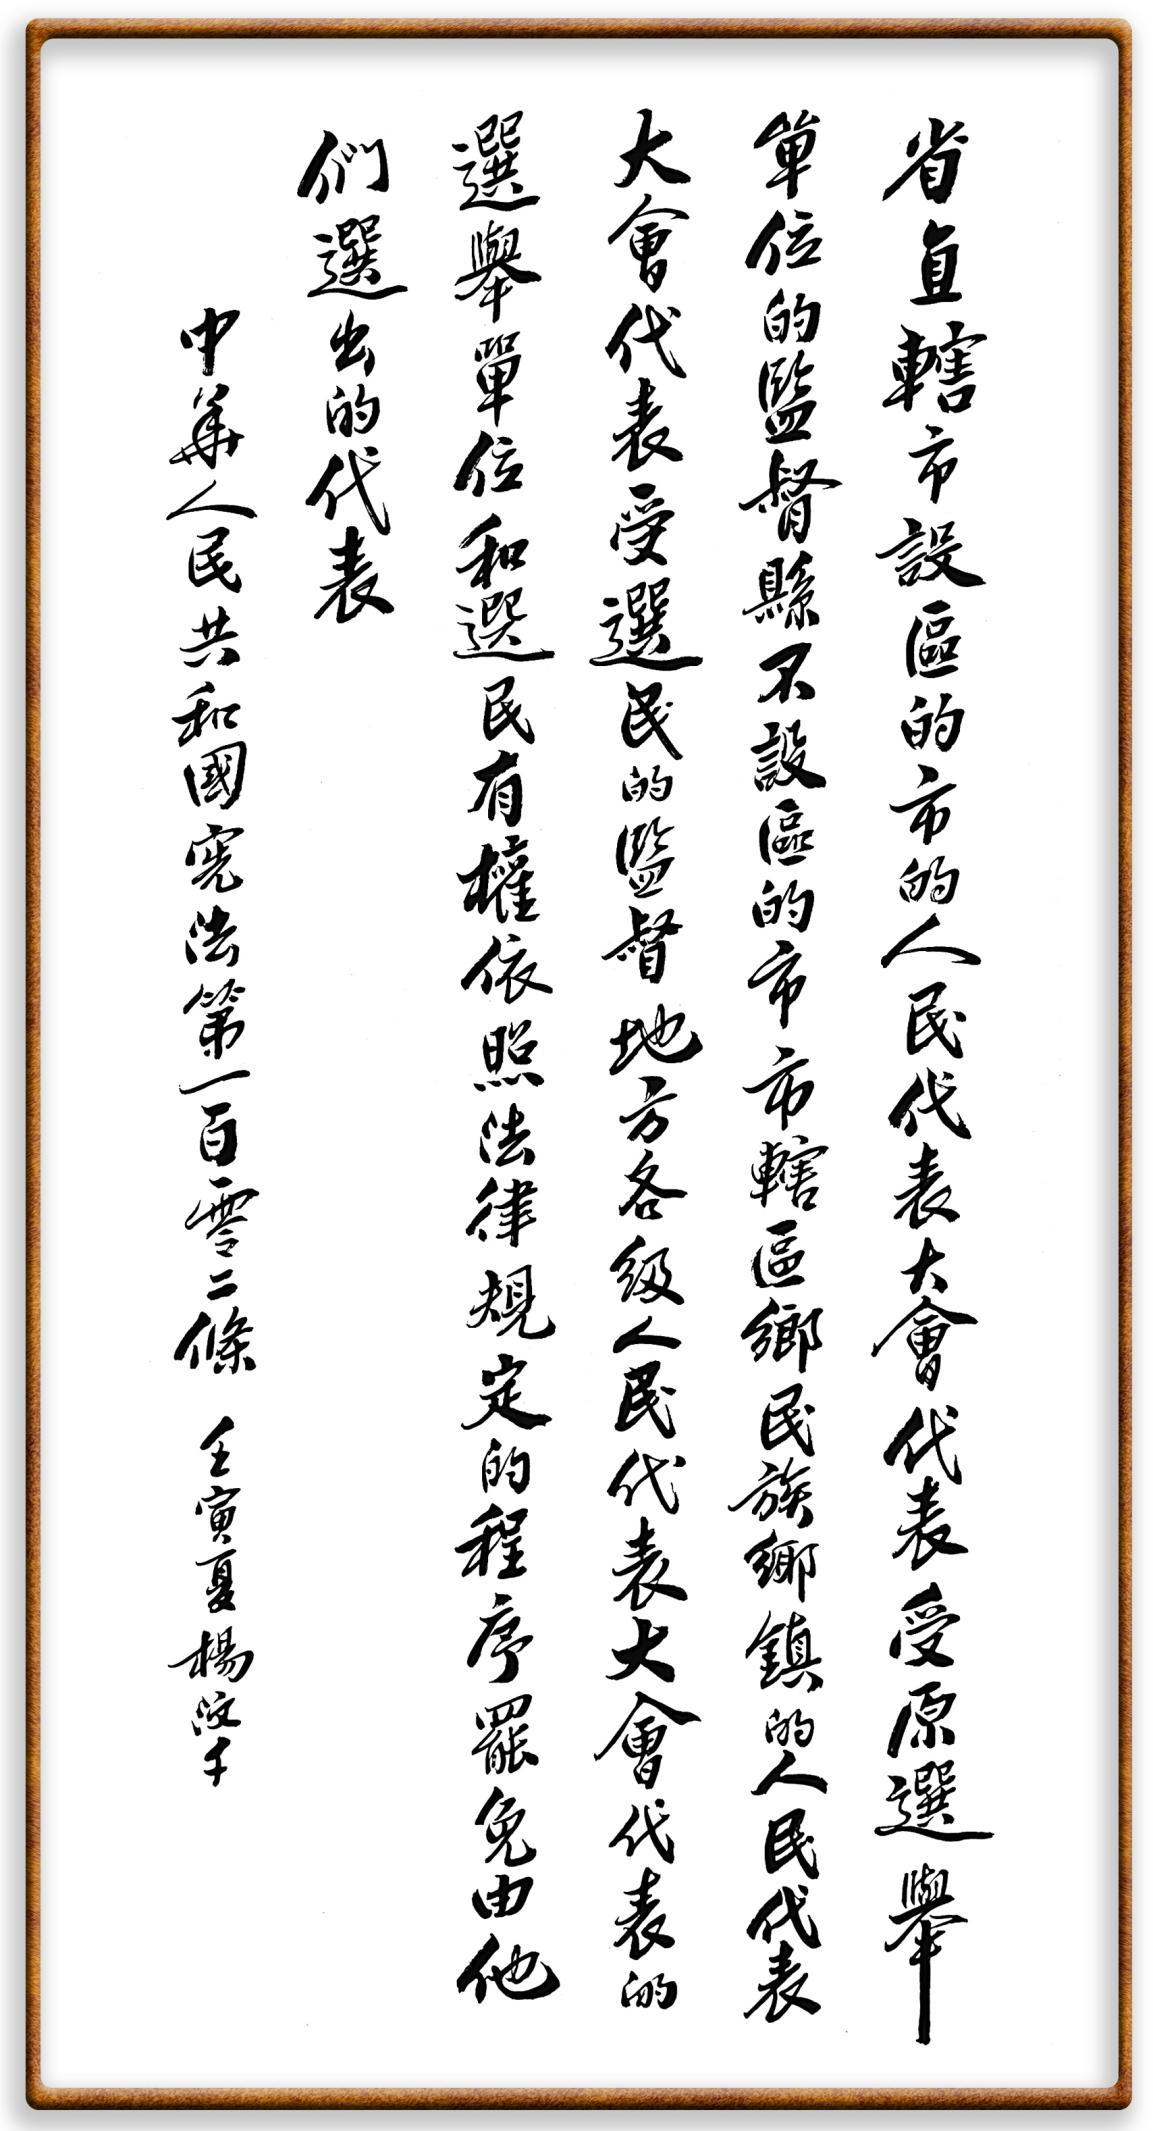 省直轄市設區的市的人民代表大會代表受原選舉
單位的監督縣不設區的市市轄區鄉民族鄉鎮的人民代表
大會代表受選民的監督地方各级人民代表大會代表的
選舉單位和選民有權依照法律規定的程序罷免由他
們選出的代表
中華人民共和國憲法第一百零二條 壬寅夏楊汶千